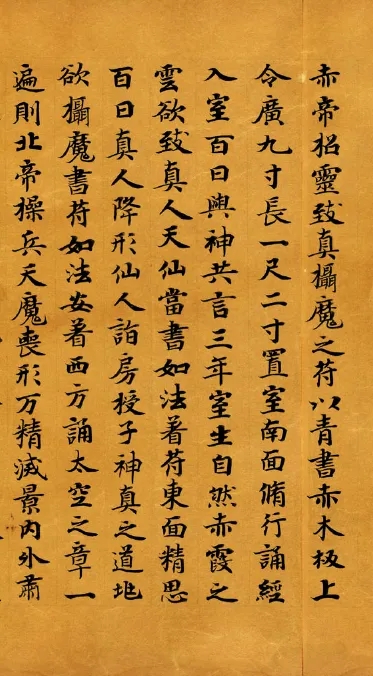 赤帝招靈致真攝魔之苻以青書赤木板上
令廣九寸長一尺二寸置室南面脩行誦經
入室百日與神共言三年室生自然赤霞之
雲欲致真人天仙當書如法著苻東面精思
百日真人降形仙人詣房授子神真之道地
欲攝魔書苻如法安著西方誦太空之章一
遍則北帝操兵天魔喪形万精滅景內外肅